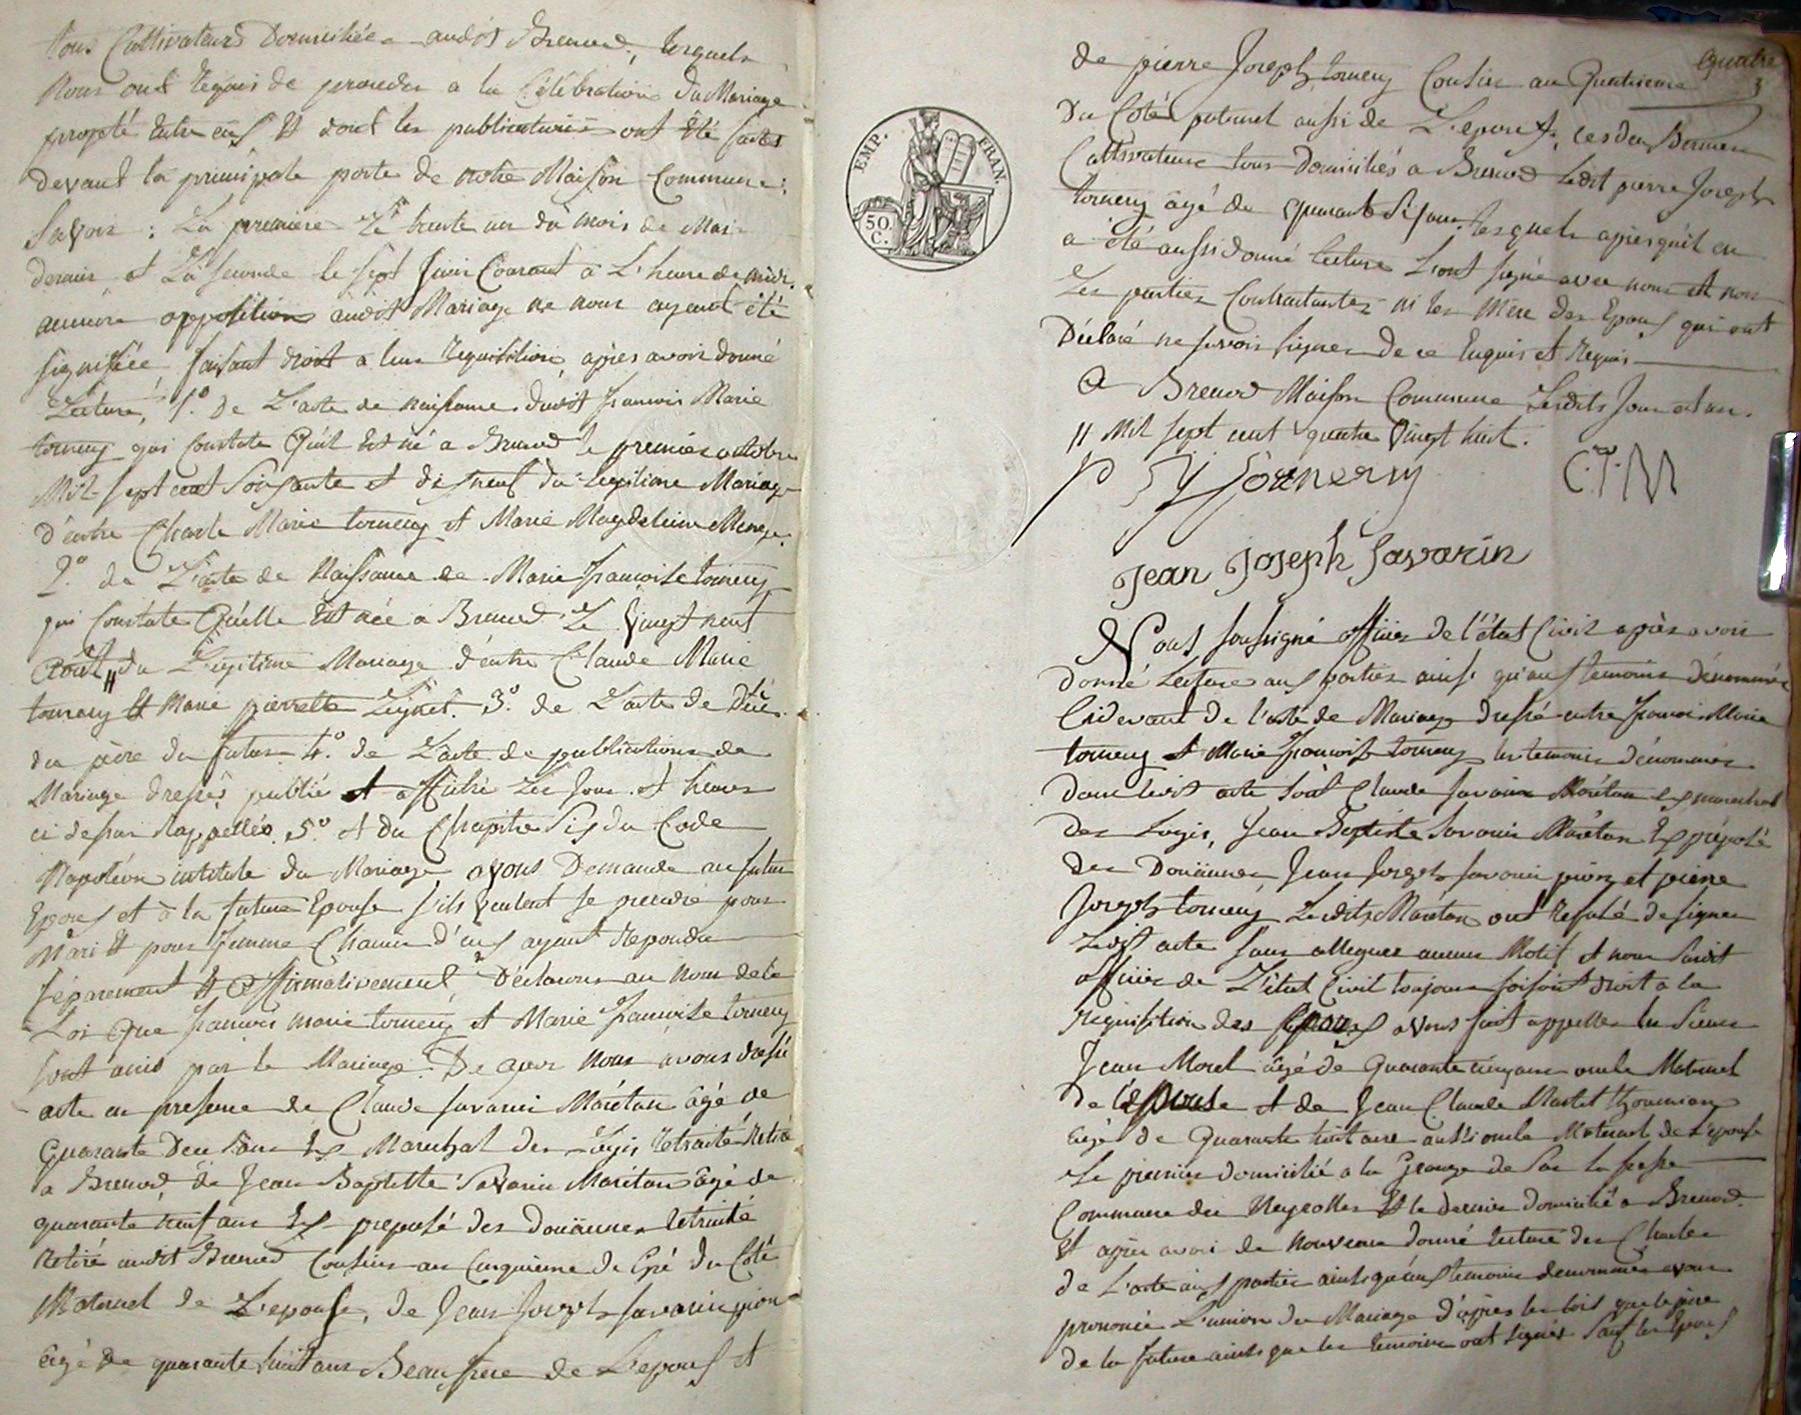 tous Cultivateurs Domiciliée audit Brenod, lesquels
Nous ont Requis de proceder a la Célébration du Mariage
projeté Entre eux Et dont les publications ont été faites
devant la principale porte de notre Maison Commune ;
Savoir : La premiere Le trente un du mois de Mai
dernier et La seconde le sept Juin Courant a L'heure de midi.
aucune opposition audit Mariage ne nous ayant été
signifiée faisant droit a leur Requisition, apres avoir donné
Lecture, 1.º de L'acte de naissance dudit francois Marie
torneny qui Constate Quil Est né a Brenod le premier octobre
Mil sept cent Soixante et dix neuf du Legitime Mariage
d'entre Charle Marie torneny et Marie Magdeleine
2.º de L'acte de Naissance de Marie francoise torneny
qui Constate Quélle Est née a Brenod Le Vingt neuf
Août " du Legitime Mariage d'entre Claude Marie
torneny Et Marie pierrette 3.º de L'acte de Décé
du père du futur 4.º de L'acte de publications de
Mariage dressés publié et affiché Les Jour et heures
ci dessus Rappellés 5.º et du Chapitre Six du Code
Napoléon intitulé du Mariage avons Demandé au futur
Epoux et à la future Epouse s'ils veulent se prendre pour
Mari Et pour femme Chacun d'eux ayant Repondu
séparement Et affirmativement Déclarons au Nom de la
Loi Que francois marie torneny et Marie francoise torneny
sont unis par le Mariage. De quoi Nous avons dressé
acte en presence de Claude Savarin Marétan âgé de
Quarante Deux ans Ex Marechal des Logis Retraité Retiré
a Brenod, de Jean Baptiste Savarin Marétan âgé de
quarante neuf ans Ex preposé des Douännes Retraité
Retiré audit Brenod Cousins au Cinquieme degré du Coté
Maternel de L'epouse, de Jean Joseph Savarin pion
âgé de quarante huit ans Beaufrere de L'epoux et
quatre
3
de pierre Joseph torneny Cousin au Quatrieme
Du Coté paternel aussi de L'epouse, ces deux Derniers
Cultivateurs tous Domiciliés a Brenod Ledit pierre Joseph
torneny âgé de quarante Six ans, lesquels apres qu'il en
a été aussi donné lecture L'ont signé avec nous et non
Les parties Contractantes ni les Mère des Epoux qui ont
Déclaré ne savoir signer de ce Enquis et Requis
a Brenod Maison Commune Lesdits Jour et an.
" Mil sept cent quatre Vingt huit.
P J torneny C.T.M
Jean Joseph Savarin
Nous soussigné officier de l'état Civil après avoir
donné Lecture aux parties ainsi qu'aux temoins Dénommés
Cidevant de l'acte de Mariage dressé entre francoi Marie
torneny et Marie francoise torneny les temoins dénommés
dans ledit acte soit Claude Savarin Marétan ex marechal
des Logis, Jean Baptiste Savarin Marétan Ex préposé
des Douännes, Jean Joseph Savarin pion et pierre
Joseph torneny Lesdits Marétan ont Refusé de signer
Ledit acte sans alleguer aucun Motif et nous Susdit
officier de L'état Civil toujours faisant droit a la
Requisition des Epoux avons fait appeller les Sieurs
Jean Morel âgé de Quarante cinq ans oncle Maternel
de l'epouse et de Jean Claude
âgé de Quarante huit ans aussi oncle Maternel de L'epouse
Le premier domicilié a la Grange de
Commune des Neyrolles Et le dernier Domicilié a Brenod
Et apres avoir de Nouveau donné lecture des
de L'acte aux parties ainsi qu'aux temoins denommés avons
prononcé L'union du Mariage d'apres les lois que le père
de la future ainsi que les temoins ont signés Sauf les Epoux
EMP. FRAN.
50 C.